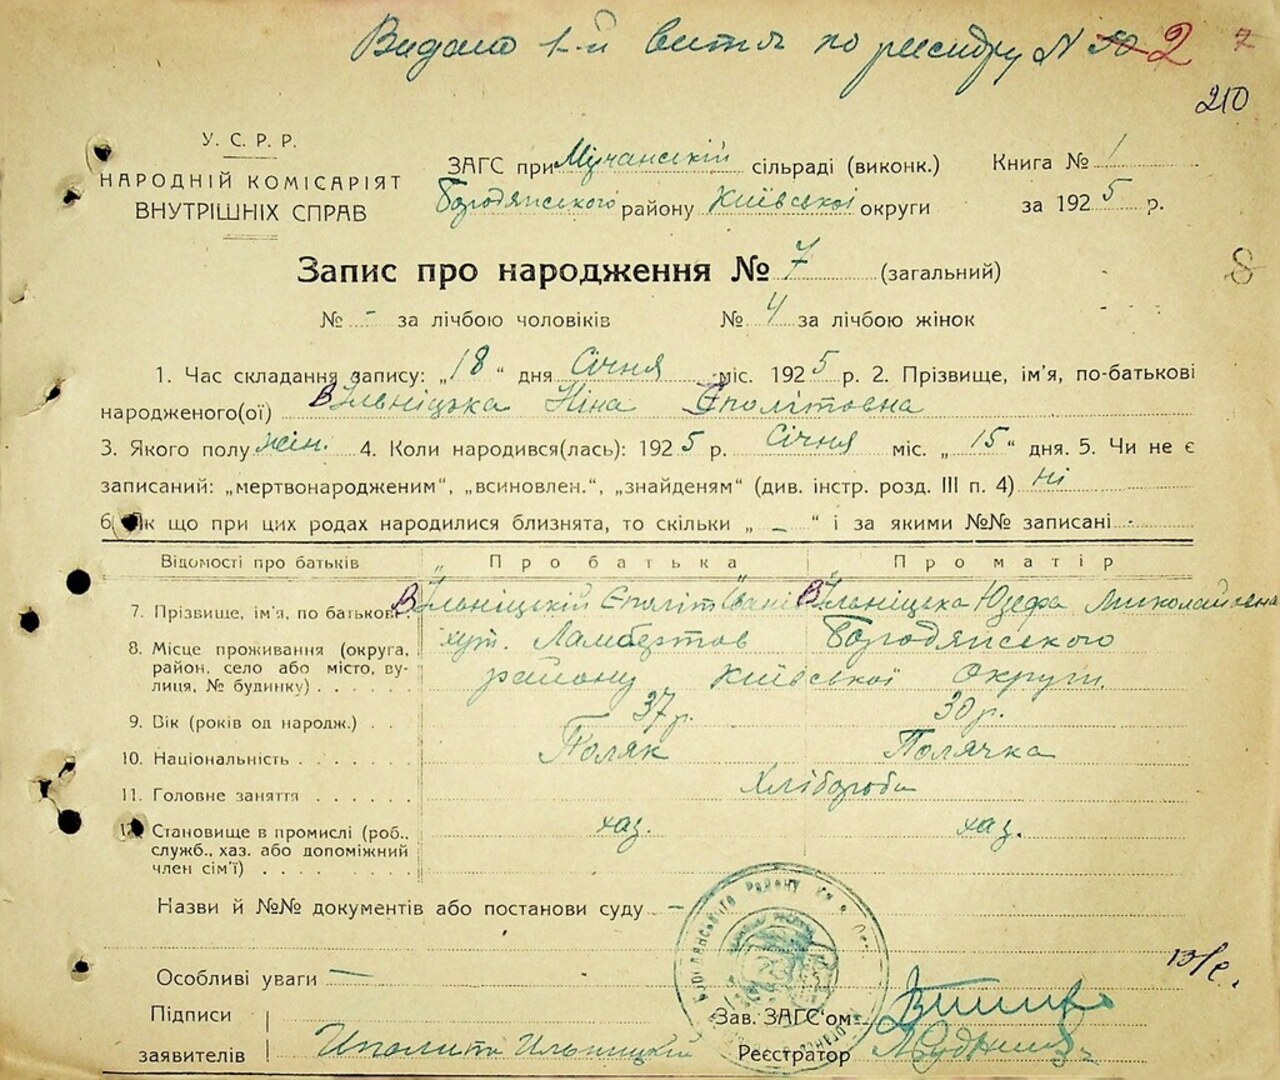 Видано 1-й витяг по реєстру N 50 2 7
210
У. С. Р. Р.
НАРОДНІЙ КОМІСАРІЯТ
ВНУТРІШНІХ СПРАВ
ЗАГС при Мірчанській сільраді (виконк.) Книга № 1
Бородянського району Київської округи за 1925 р.
Запис про народження № 7 (загальний)
8
№ - за лічбою чоловіків № 4 за лічбою жінок
1. Час складання запису: „18“ дня Січня міс. 1925 р. 2. Прізвище, ім'я, по-батькові
народженого(ої) Вільніцька Ніна Єполітовна
3. Якого полу жін. 4. Коли народився(лась): 1925 р. Січня міс. „15“ дня. 5. Чи не є
записаний: „мертвонародженим“, „всиновлен.“, „знайденям“ (див. інстр. розд. III п. 4) ні
6. Як що при цих родах народилися близнята, то скільки „ – “ і за якими №№ записані -
Відомості про батьків Про батька Про матір
7. Прізвище, ім'я, по батькові. Вільніцькій Єполіт Іванів Вільніцька Юзефа Миколайовна
8. Місце проживання (округа, хут. Ламбертов Бородянського
район, село або місто, ву-
лиця, № будинку) району Київської Округи.
9. Вік (років од народж.) 37 р. 30 р.
10. Національність Поляк Полячка
11. Головне заняття Хлібороби
12. Становище в промислі (роб., хаз. хаз.
служб., хаз. або допоміжний
член сім'ї)
Назви й №№ документів або постанови суду –
Особливі уваги –
Підписи
Зав. ЗАГС'ом
заявителів Иполит Ильницкий Реєстратор